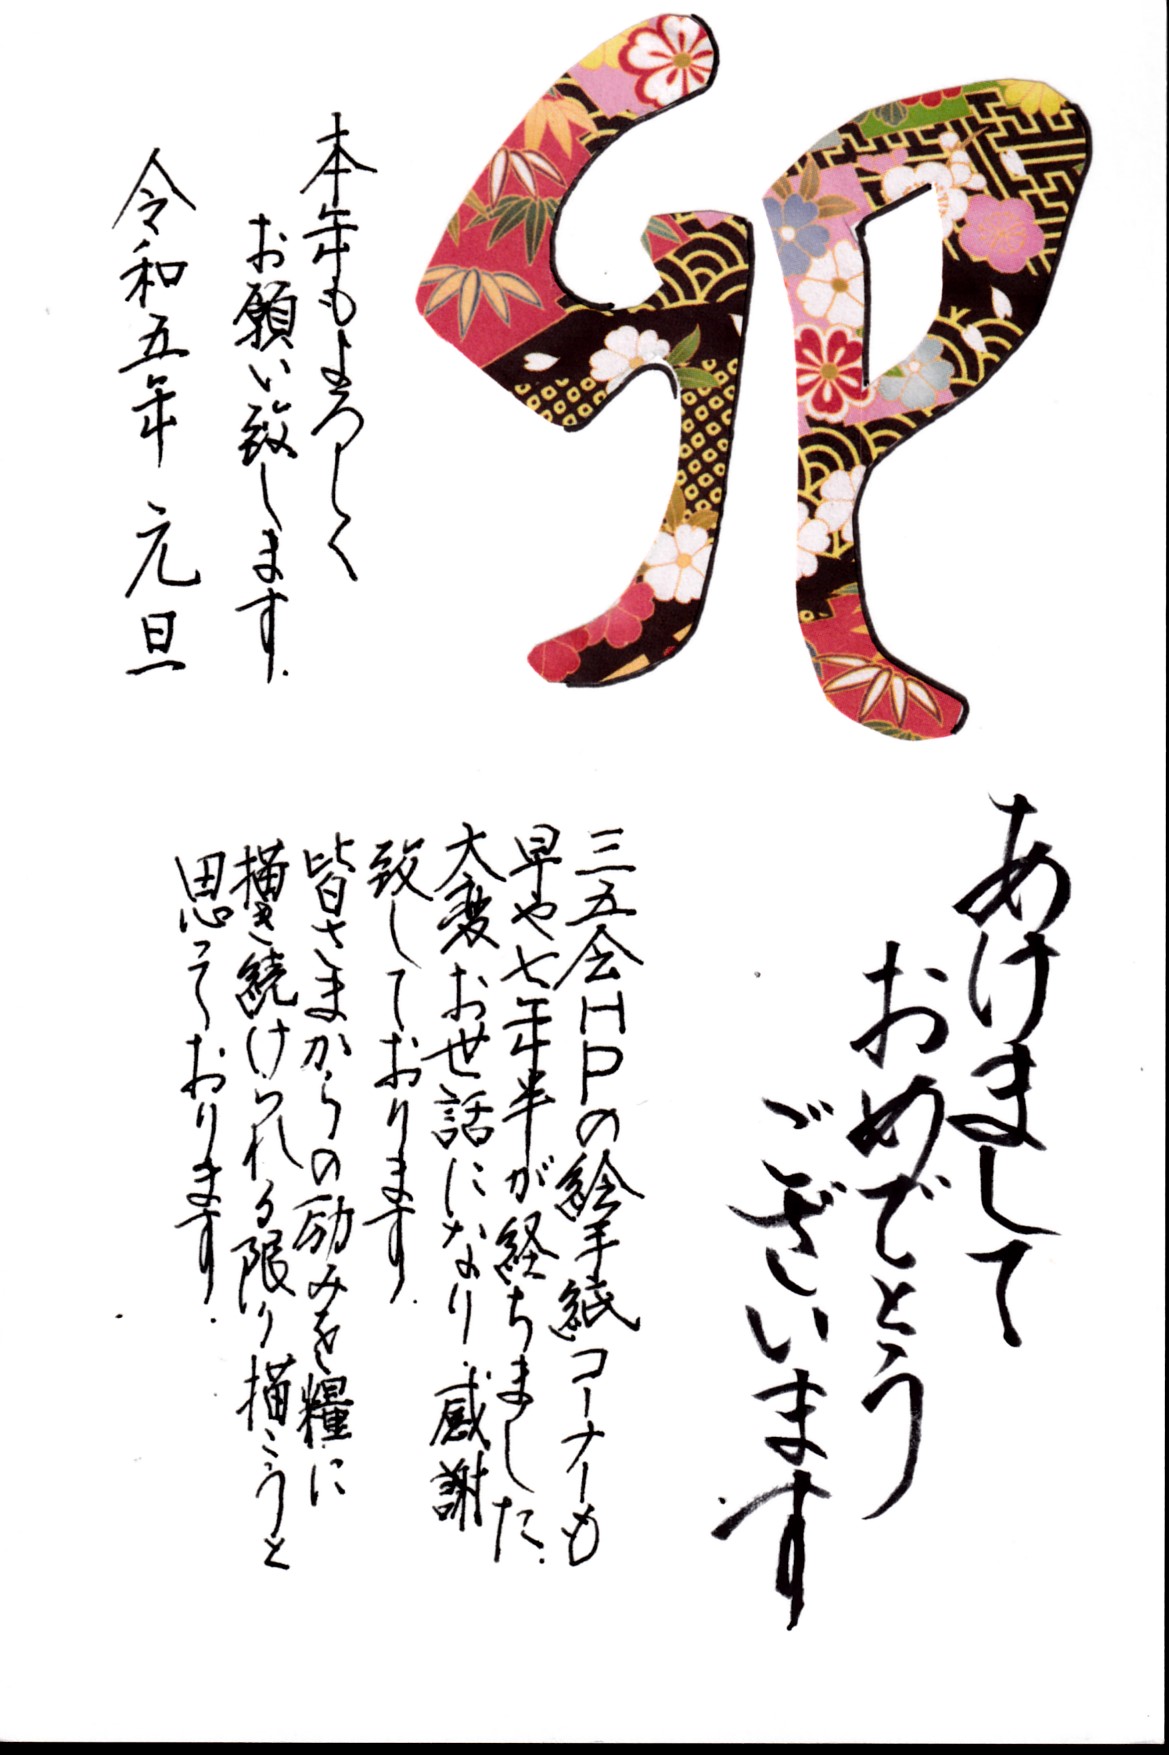 卯
あけまして
おめでとう
ございます
三五会HPの絵手紙コーナーも
早や七年半が経ちました.
大変お世話になり感謝
致しております.
皆さまからの励みを糧に
描き続けられる限り描こうと
思っております.
本年もよろしく
お願い致します.
令和五年 元旦